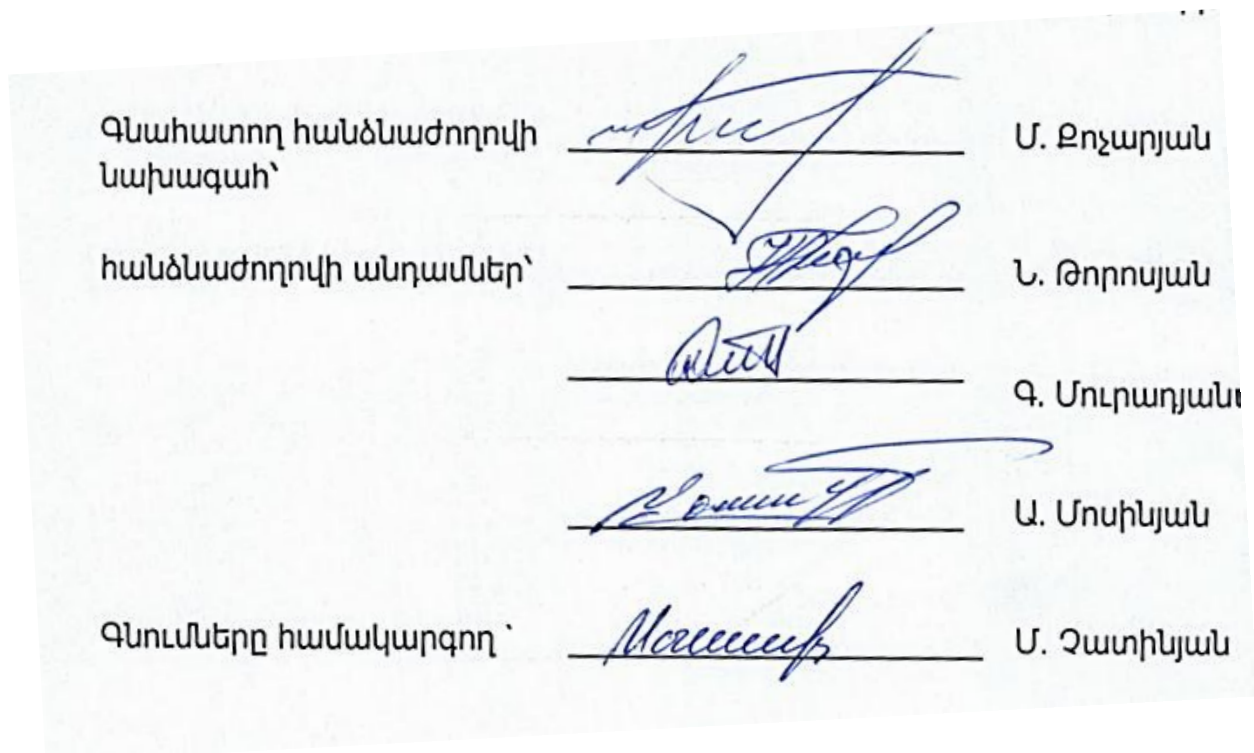 Գնահատող հանձնաժողովի Մ. Քոչարյան
նախագահ՝
հանձնաժողովի անդամներ՝ Ն. Թորոսյան
Գ. Մուրադյան
Ա. Մոսինյան
Գնումները համակարգող ՝ Մ. Չատինյան